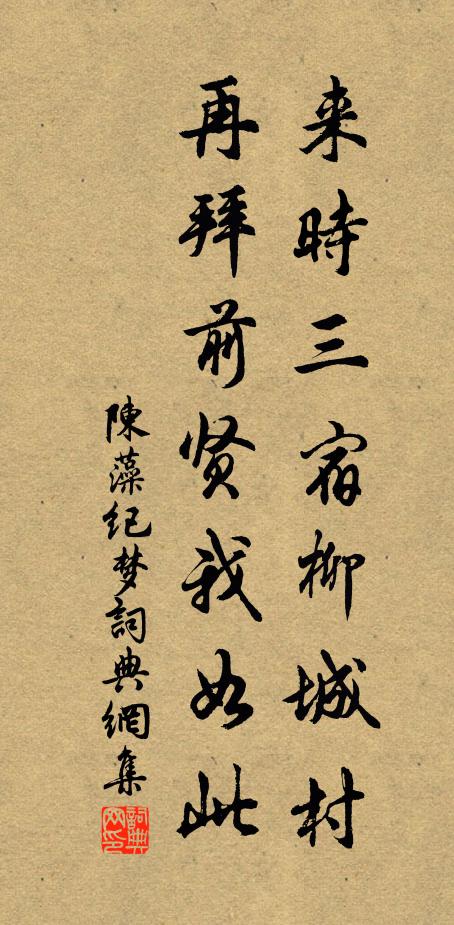 来時三宿柳城村
再拜前贤我如此
陳藻纪梦詞典網集
詞典网印